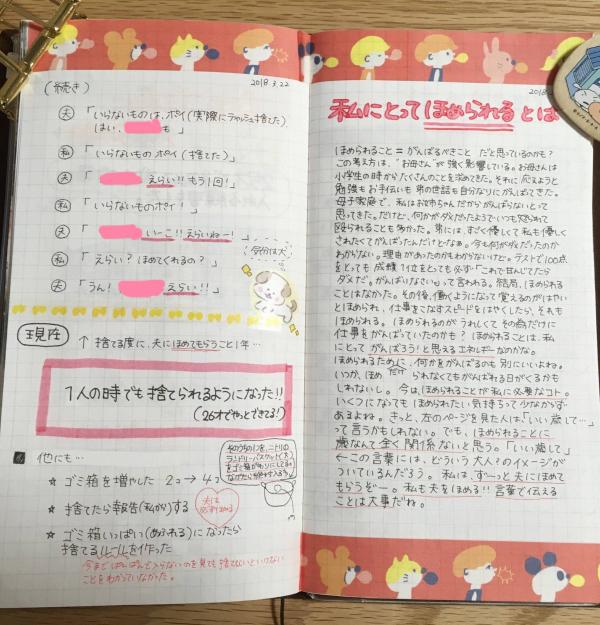 (続き)
2018.3.22
夫 「いらないものは、ポイ(実際にティッシュ捨てた)
はい、も」
私 「いらないものポイ(捨てた)」
夫 「えらい!!もう1回!」
私 「いらないものポイ!」
夫 「いーこ!!えらいねー!」
気分は犬
私 「えらい?ほめてくれるの?」
夫 「うん!えらい!!」
現在
↑捨てる度に、夫にほめてもらうこと1年…
1人の時でも捨てられるようになった!!
(26才でやっとできてる!)
他にも…
そのうちの1つを、ニトリの
ランドリーバスケット(大)
をゴミ箱がわりにしてる。
☆ ゴミ箱を増やした 2コ→4コ
☆ 捨てたら報告(私が)する
夫は
必ずほめる
☆ ゴミ箱いっぱい(あふれる)になったら
捨てるルールを作った
今までぱんぱんで入らないのを見ても捨てて
ことをわかっていなかった。
2018.
私にとってほめられるとは
ほめられること=がんばるべきことだと思っているのかも?
この考え方は、"お母さん"が強く影響している。お母さんは
小学生の時からたくさんのことを求めてきた。それに応えようと
勉強もお手伝いも弟の世話も自分なりにがんばってきた。
母子家庭で、私はお姉ちゃんだからがんばらないとって
思ってきた。だけど、何かがダメだったようでいつも怒られて
殴られることも多かった。弟には、すごく優しくて私も優しく
されたくてがんばったんだけどなぁ。今も何がダメだったのか
わからない。理由があったのかもわからないけど。テストで100点
をとっても成績1位をとっても必ず「これで甘んじてたら
ダメだ。がんばりなさい」って言われる。結局、ほめられる
ことはなかった。その後、働くようになって覚えるのがはやい
とほめられ、仕事をこなすスピードをはやくしたら、それも
ほめられる。ほめられるのがうれしくてその為だけに
仕事をがんばっていたのかも?ほめられることは、私
にとってがんばろう!と思えるエネルギーなのかな。
ほめられるために、何かをがんばるのも別にいいよね。
いつか、ほめられなくてもがんばれる日がくるかも
しれないし。今は、ほめられることが私に必要なコト。
いくつになってもほめられたい気持ちって少なからず
あるよね。きっと、左のページを見た人は、「いい歳して…」
って言うかもしれない。でも、ほめられることに
歳なんて全く関係ないと思う。「いい歳して」
←この言葉には、どういう大人?のイメージが
ついているんだろう。私は、ずーっと夫にほめて
もらうぞー。私も夫をほめる!!言葉で伝える
ことは大事だね。